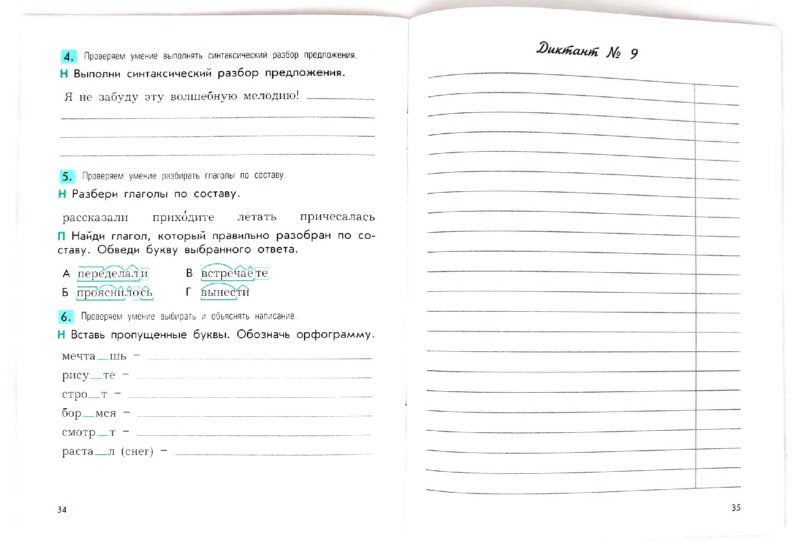 4. Проверяем умение выполнять синтаксический разбор предложения.
Н Выполни синтаксический разбор предложения.
Я не забуду эту волшебную мелодию!
5. Проверяем умение разбирать глаголы по составу
Н Разбери глаголы по составу.
рассказали прихо́дите летать причесалась
П Найди глагол, который правильно разобран по со-
ставу. Обведи букву выбранного ответа.
А переделали В встречаете
Б прояснилось Г вынести
6. Проверяем умение выбирать и объяснять написание.
Н Вставь пропущенные буквы. Обозначь орфограмму.
мечта_шь –
рису_те –
стро_т –
бор_мся –
смотр_т –
раста_л (снег) –
34
Диктант № 9
35